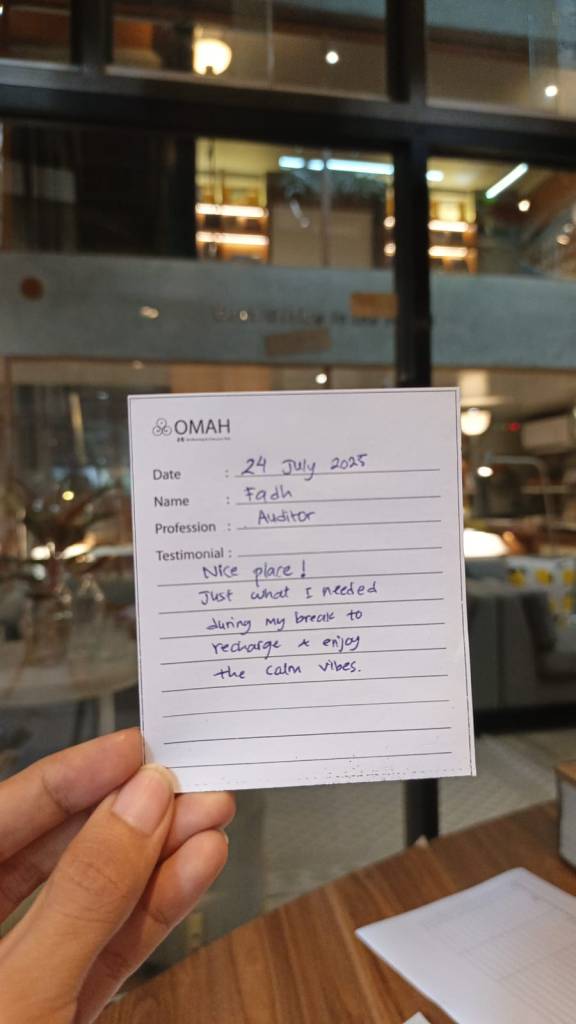 OMAH
Date : 24 July 2025
Name : Fadh
Profession : Auditor
Testimonial :
Nice place!
Just what I needed
during my break to
recharge & enjoy
the calm vibes.